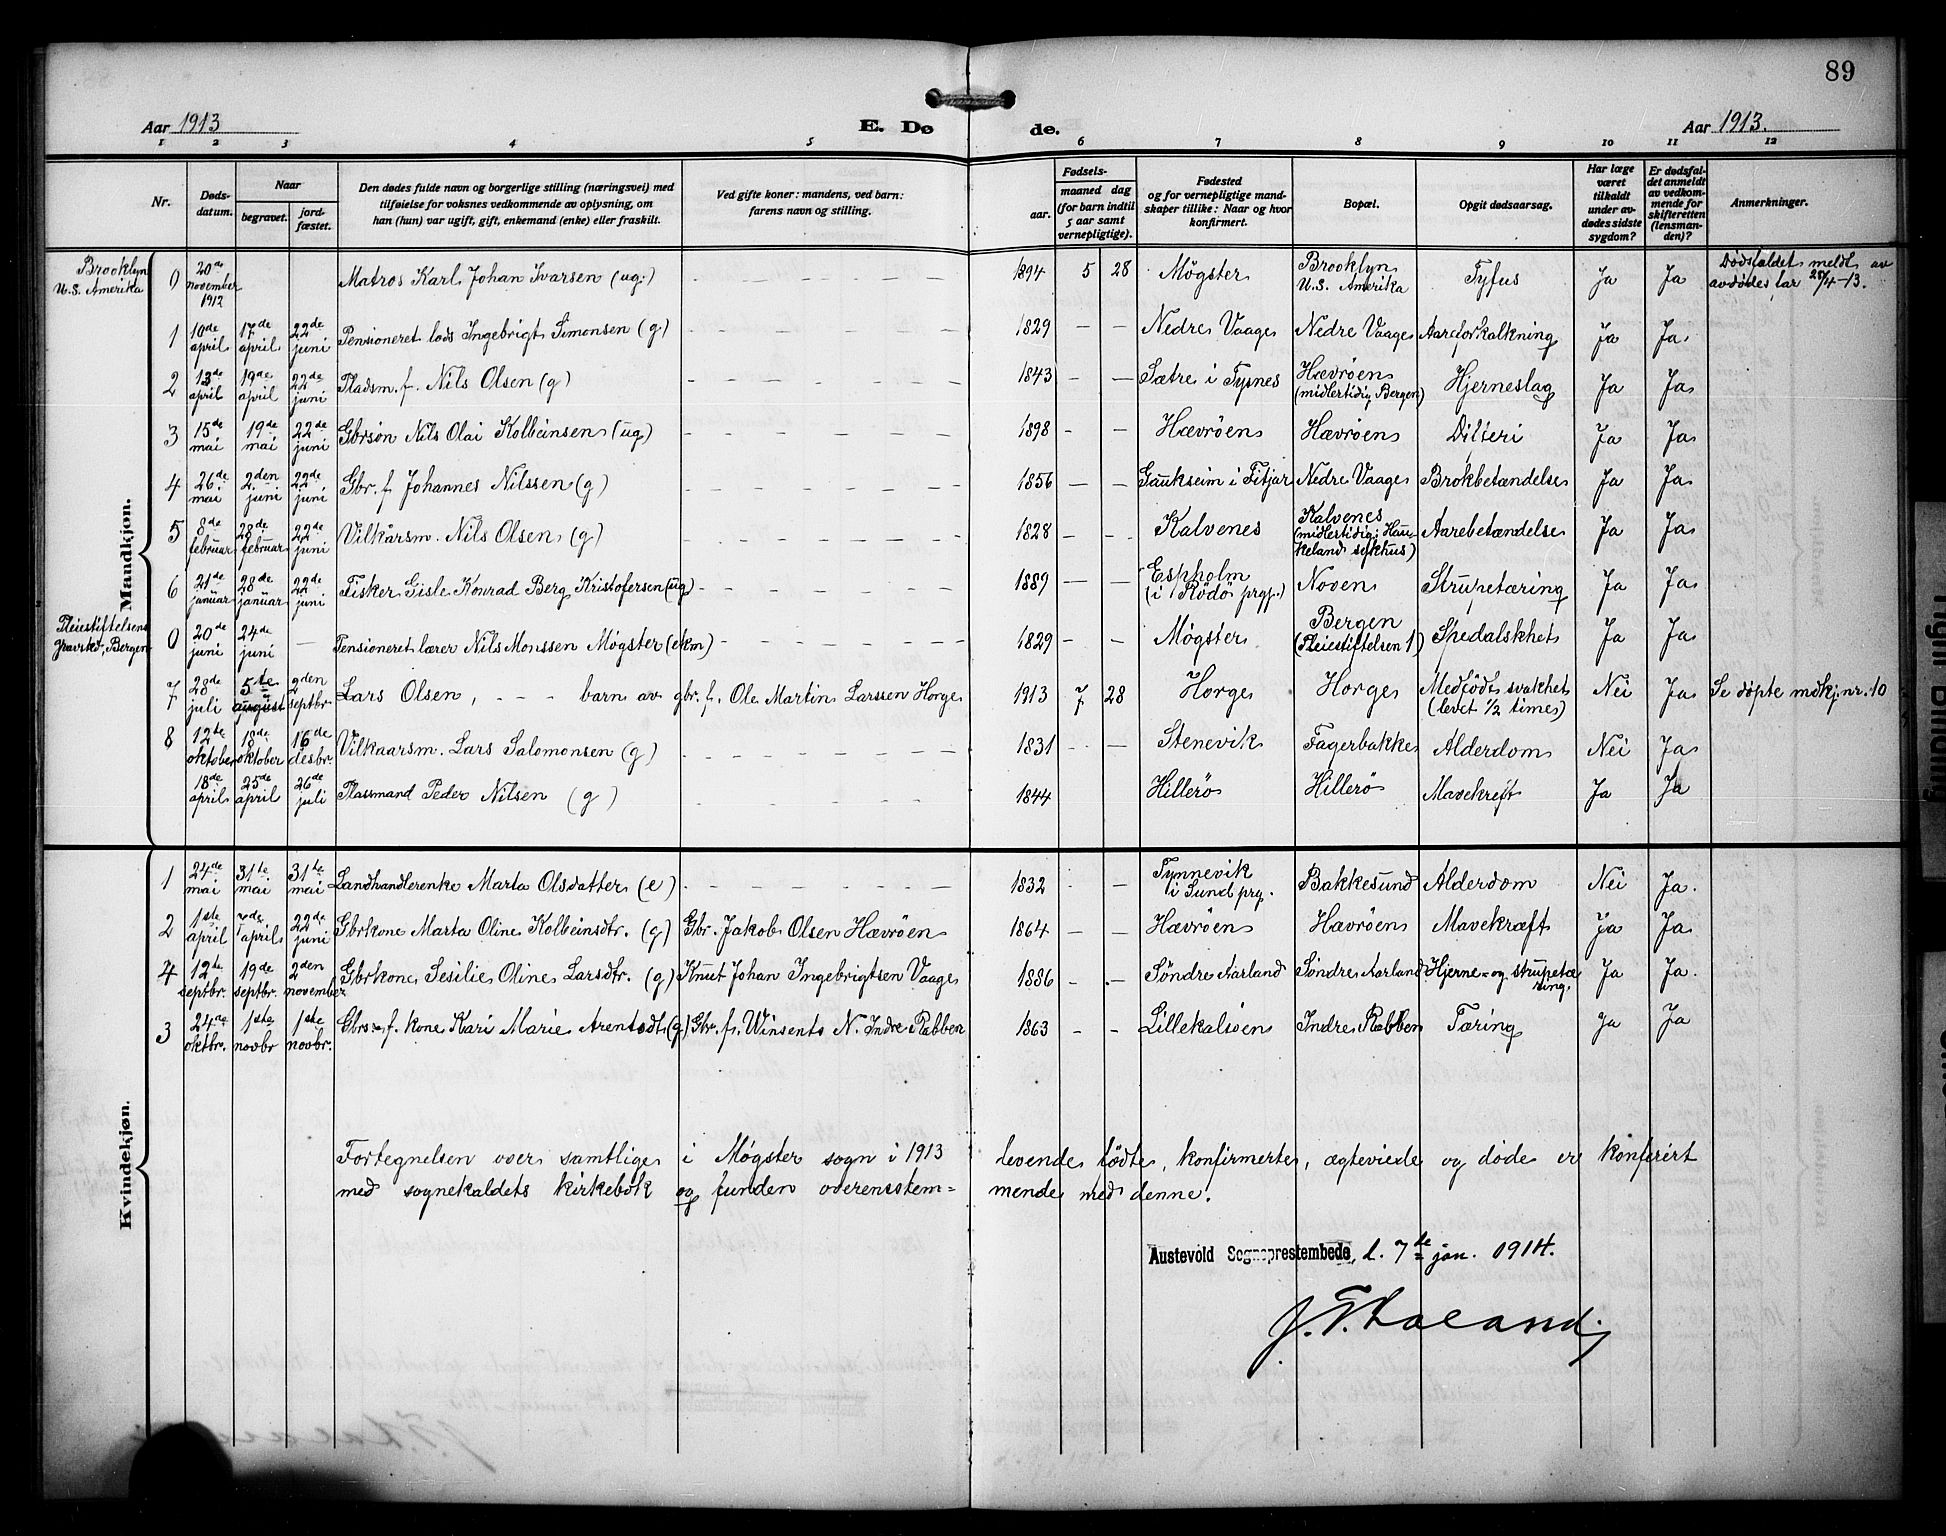 89
Aar 1913
E. Dø
de.
Aar 1913.
1 2 3 4 5 6 7 8 9 10 11 12
Nr.
Døds-
datum.
Naar
begravet.
jord-
fæstet.
Den dødes fulde navn og borgerlige stilling (næringsvei) med
tilføielse for voksnes vedkommende av oplysning, om
han (hun) var ugift, gift, enkemand (enke) eller fraskilt.
Ved gifte koner: mandens, ved barn:
farens navn og stilling.
Fødsels-
aar.
maaned dag
(for barn indtil
5 aar samt
vernepligtige).
Fødested
og for vernepligtige mand-
skaper tillike: Naar og hvor
konfirmert.
Bopæl.
Opgit dødsaarsag.
Har læge
været
tilkaldt
under av-
dødes sidste
sygdom?
Er dødsfal-
det anmeldt
av vedkom-
mende for
skifteretten
(lensman-
den)?
Anmerkninger.
Mandkjøn.
Brooklyn
U.S. Amerika
0 20de november 1912 Matros Karl Johan Ivarsen (ug.) 1894 5 28 Møgster Brooklyn U.S. Amerika Tyfus Ja Ja Dødsfaldet meldt av avdødes far 28/4-13.
1 10de april 17de april 22de juni Pensioneret lods Ingebrigt Simonsen (g) - 1829 - - Nedre Vaage Nedre Vaage Aareforkalkning Ja Ja
2 13de april 19de april 22de juni Pladsm. f. Nils Olsen (g) - 1843 - - Sætre i Tysnes Hævrøen (midlertidig Bergen) Hjerneslag Ja Ja
3 15de mai 19de mai 22de juni Gbrsøn Nils Olai Kolbeinsen (ug) - 1898 - - Hævrøen Hævrøen Difteri Ja Ja
4 26de mai 2den juni 22de juni Gbr. f. Johannes Nilssen (g) - 1856 - - Gaukseim i Fitjar Nedre Vaage Brokbetændelse Ja Ja
5 8de februar 28de februar 22de juni Vilkårsm. Nils Olsen (g) - 1828 - - Kalvenes Kalvenes (midlertidig: Hau-keland sykhus) Aarebetændelse Ja Ja
6 21de januar 28de januar 22de juni Fisker Gisle Konrad Berg Kristofersen (ug) - 1889 - - Espholm (i Rødø prgj.) Noven Strupetæring Ja Ja
Pleiestiftelsens
gravstd. Bergen
0 20de juni 24de juni - Pensioneret lærer Nils Monssen Møgster (ekm) - 1829 - - Møgster Bergen (Pleiestiftelsen 1) Spedalskhet Ja Ja
7 28de juli 5te august 2den septbr. Lars Olsen, - - barn av gbr. f. Ole Martin Larssen Horge 1913 7 28 Horge Horge Medfødt svakhet (levet 1/2 time) Nei Ja Se døpte mdkj. nr. 10
8 12te oktober 18de oktober 16de desbr. Vilkaarsm. Lars Salomonsen (g) - 1831 - - Stenevik Fagerbakke Alderdom Nei Ja
18de april 25de april 26de juli Plassmand Peder Nilsen (g) - 1844 Hillerø Hillerø Mavekreft Ja Ja
Kvindekjøn.
1 24de mai 31te mai 31te mai Landhandlerenke Marta Olsdatter (e) - 1832 - - Tynnevik i Sund prg. Bakkesund Alderdom Nei Ja.
2 1ste april 7de april 22de juni Gbrkone Marta Oline Kolbeinsdtr. (g) Gbr. Jakob Olsen Hævrøen 1864 - - Hævrøen Hævrøen Mavekræft Ja Ja
4 12te septbr. 19de septbr. 2den november Gbrkone Sesilie Oline Larsdtr. (g) Knut Johan Ingebrigtsen Vaage 1886 - - Søndre Aarland Søndre Aarland Hjerne- og strupetæ-ring. Ja Ja.
3 24de oktbr. 1ste novbr 1ste novbr. Gbrs. f. kone Kari Marie Arentsdt. (g) Gbr. f. Winsents N. Indre Rabben 1863 - - Lillekalsøen Indre Rabben Tæring Ja Ja
Fortegnelsen over samtlige i Møgster sogn i 1913 levende fødte, konfirmerte, ægteviede og døde er konferert
med sognekaldets kirkebok og funden overensstem= mende med denne.
Austevold Sogneprestembede, d. 7de jan. 1914.